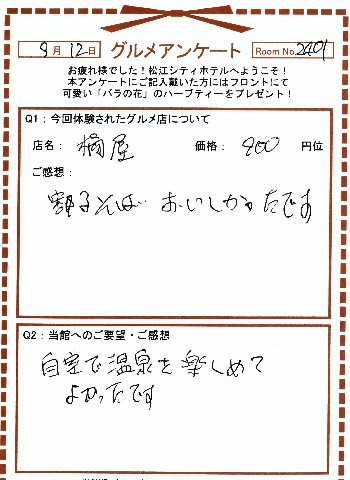 9月12日 グルメアンケート Room No.2401
お疲れ様でした！松江シティホテルへようこそ！
本アンケートにご記入戴いた方にはフロントにて
可愛い「バラの花」のハーブティーをプレゼント！
Q1：今回体験されたグルメ店について
店名： 橘屋 価格： 900 円位
ご感想：
割子そば おいしかったです
Q2：当館へのご要望・ご感想
自室で温泉を楽しめて
よかったです